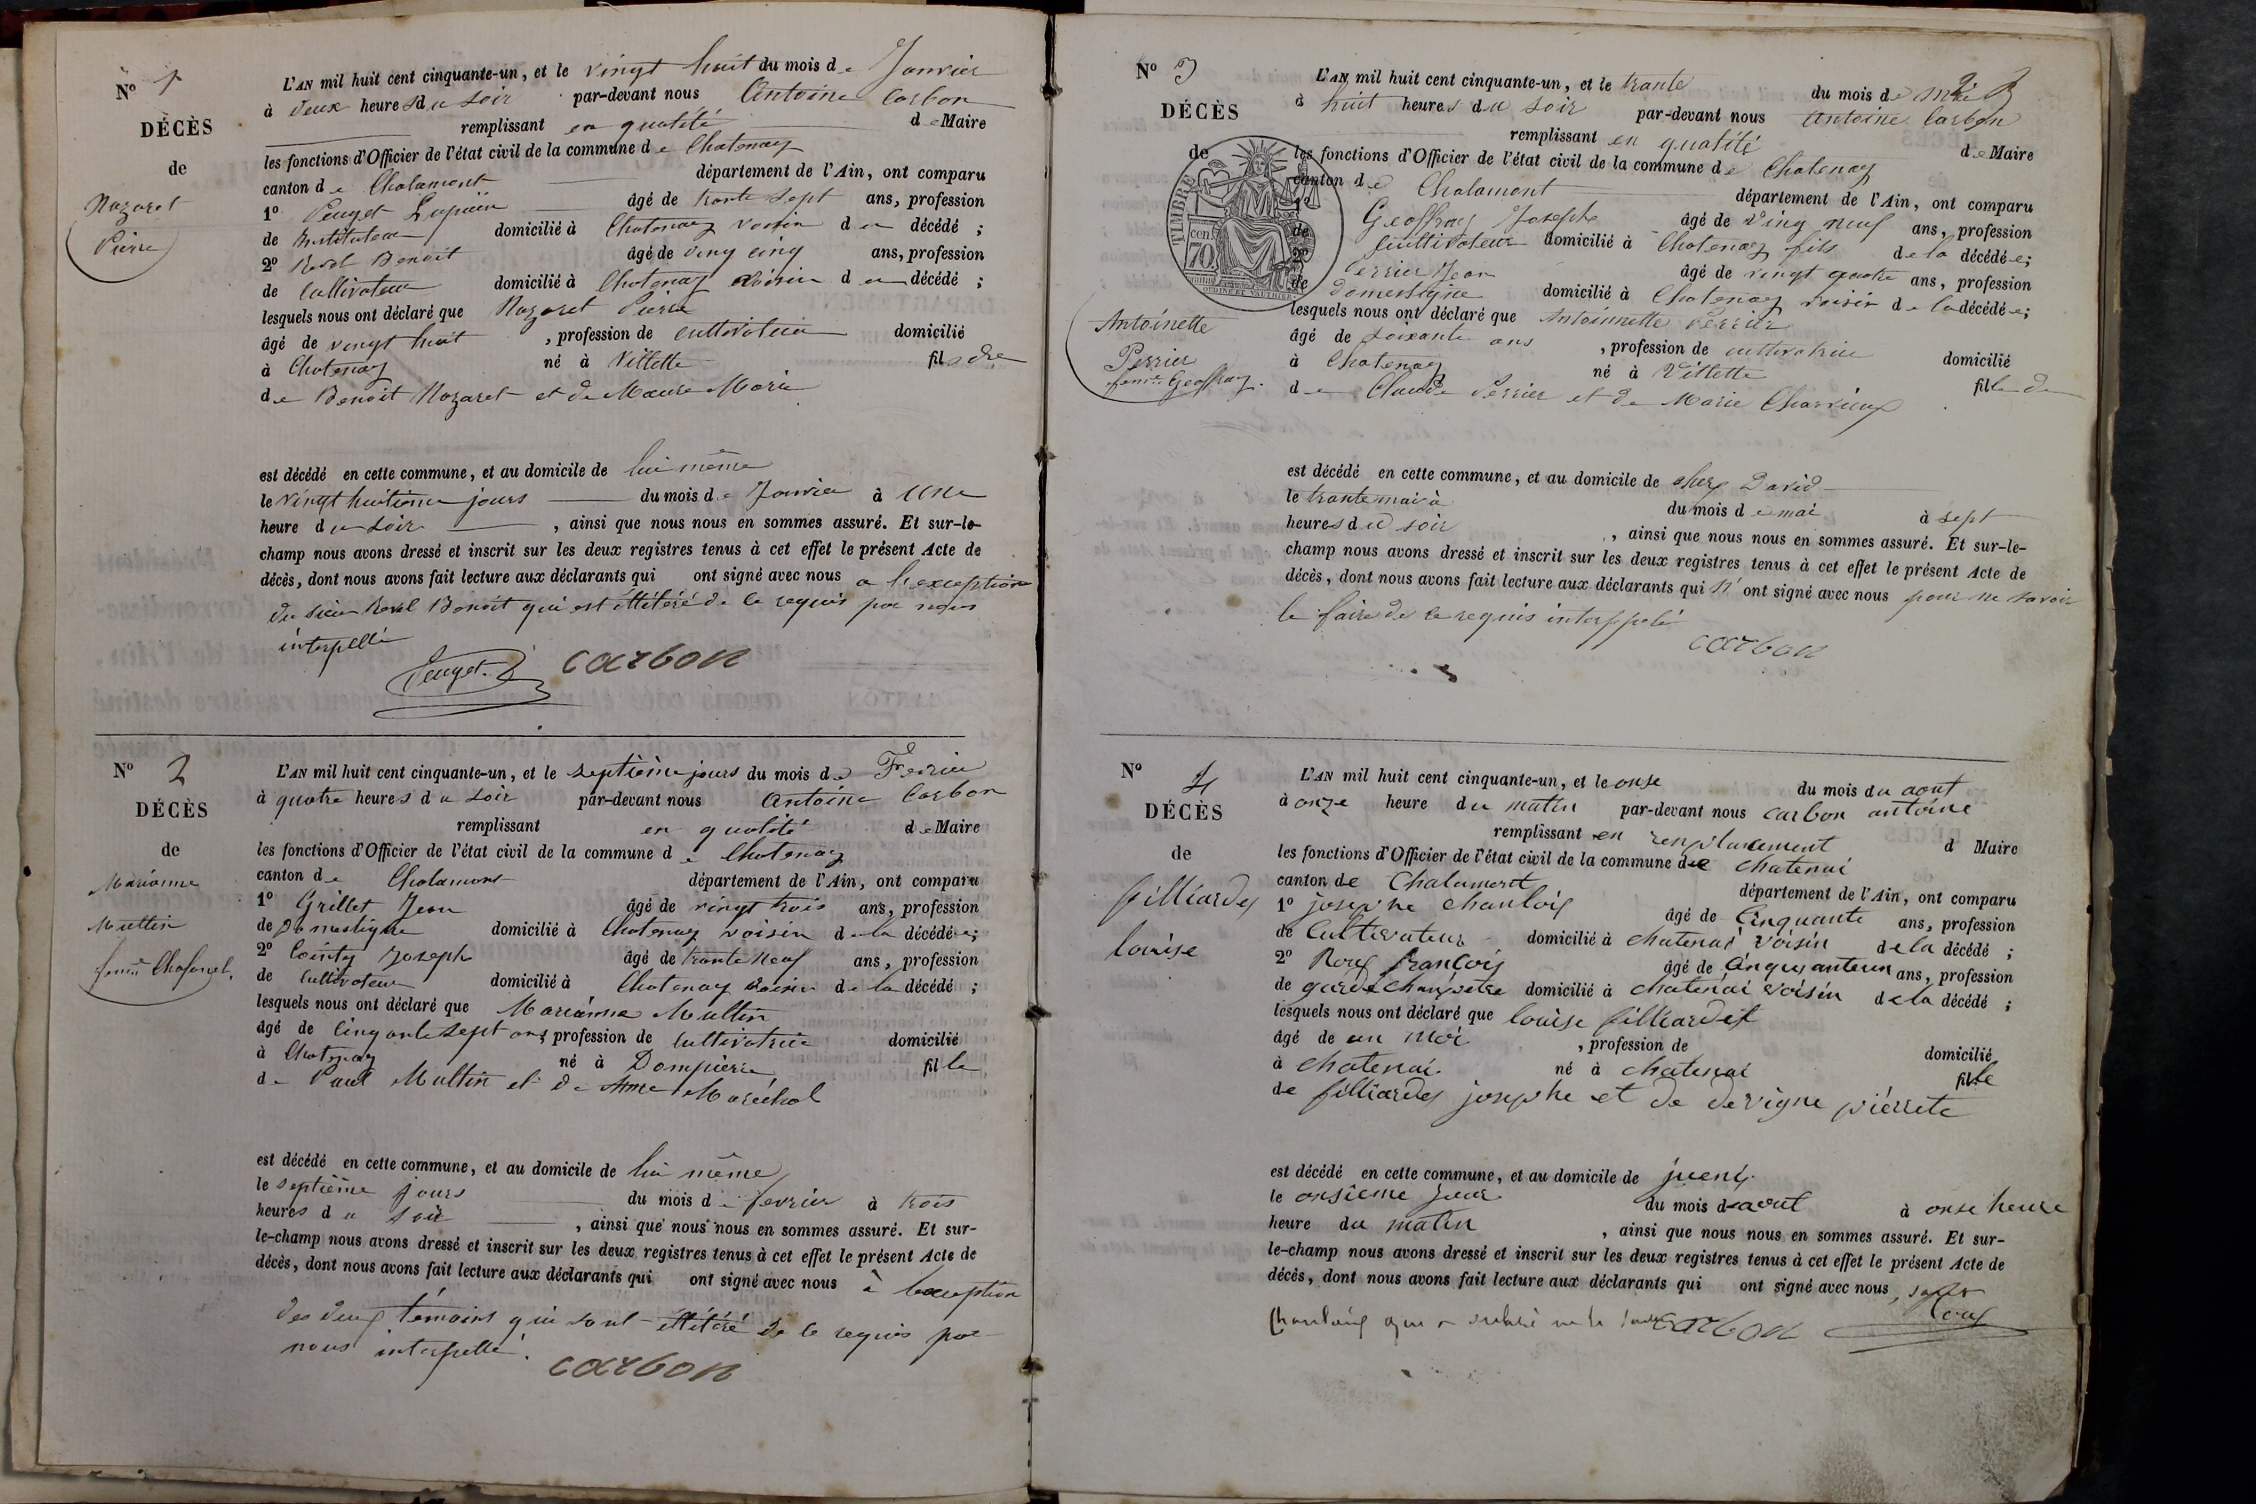 N° 1
DÉCÈS
de
Nazaret
Pierre
L'AN mil huit cent cinquante-un, et le vingt huit du mois de Janvier
à deux heures du soir par-devant nous Antoine Carbon
remplissant en qualité de Maire
les fonctions d'Officier de l'état civil de la commune de Chatenay
canton de Chalamont département de l'Ain, ont comparu
1° Peuget âgé de trante sept ans, profession
de Instituteur domicilié à Chatenay voisin du décédé ;
2° Revel Benoit âgé de ving cinq ans, profession
de Cultivateur domicilié à Chatenay voisin du décédé ;
lesquels nous ont déclaré que Nazaret Pierre
âgé de vingt huit , profession de cultivateur domicilié
à Chatenay né à Villette fils de
de Benoit Nazaret et de Maure Marie
est décédé en cette commune, et au domicile de lui même
le vingt huitieme jours du mois de Janvier à une
heure du soir , ainsi que nous nous en sommes assuré. Et sur-le-
champ nous avons dressé et inscrit sur les deux registres tenus à cet effet le présent Acte de
décès, dont nous avons fait lecture aux déclarants qui ont signé avec nous a l'exception
du sieur Revel Benoit qui est illitéré de ce requis par nous
interpellé
Peuget carbon
N° 2
DÉCÈS
de
Marianne
Multin
femme Chafanel
L'AN mil huit cent cinquante-un, et le septième jours du mois de Fevrier
à quatre heures du soir par-devant nous Antoine Carbon
remplissant en qualité de Maire
les fonctions d'Officier de l'état civil de la commune de Chatenay
canton de Chalamont département de l'Ain, ont comparu
1° Grillet Jean âgé de vingt trois ans, profession
de Domestique domicilié à Chatenay voisin de la décédée;
2° Cointy Joseph âgé de trante neuf ans, profession
de Cultivateur domicilié à Chatenay voisin de la décédé ;
lesquels nous ont déclaré que Marianne Multin
âgé de Cinqante sept ans, profession de Cultivatrice domicilié
à Chatenay né à Dompierre fille
de Paul Multin et de Anne Maréchal
est décédé en cette commune, et au domicile de lui même
le septième jours du mois de fevrier à trois
heures du soir , ainsi que nous nous en sommes assuré. Et sur-
le-champ nous avons dressé et inscrit sur les deux registres tenus à cet effet le présent Acte de
décès, dont nous avons fait lecture aux déclarants qui ont signé avec nous à l'exception
des deux témoins qui sont illitéré de ce requis par
nous interpellé.
carbon
N° 3
DÉCÈS
de
TIMBRE
70 cent
Antoinette
Perrier
femme Geoffray
L'AN mil huit cent cinquante-un, et le trante du mois de mai
à huit heures du soir par-devant nous Antoine Carbon
remplissant en qualité de Maire
les fonctions d'Officier de l'état civil de la commune de Chatenay
canton de Chalamont département de l'Ain, ont comparu
1° Geoffray Josephe âgé de ving neuf ans, profession
de Cultivateur domicilié à Chatenay fils de la décédée;
2° Perrier Jean âgé de vingt quatre ans, profession
de domestique domicilié à Chatenay voisin de la décédée;
lesquels nous ont déclaré que Antoinnette Perrier
âgé de soixante ans , profession de cultivatrice domicilié
à Chatenay né à Villette fille de
de Claude Perrier et de Marie Charvieux
est décédé en cette commune, et au domicile de chez David
le trante mai à du mois de mai à sept
heures du soir , ainsi que nous nous en sommes assuré. Et sur-le-
champ nous avons dressé et inscrit sur les deux registres tenus à cet effet le présent Acte de
décès, dont nous avons fait lecture aux déclarants qui n'ont signé avec nous pour ne savoir
le faire de ce requis interppelé
carbon
N° 4
DÉCÈS
de
filliardes
louise
L'AN mil huit cent cinquante-un, et le onse du mois du aout
à onze heure du matin par-devant nous carbon antoine
remplissant en remplacement d Maire
les fonctions d'Officier de l'état civil de la commune de chatenai
canton de Chalamont département de l'Ain, ont comparu
1° josephe chanloix âgé de Cinquante ans, profession
de Cultivateur domicilié à chatenai voisin de la décédé ;
2° Roux françois âgé de Cinquanteun ans, profession
de garde champetre domicilié à chatenai voisin de la décédé ;
lesquels nous ont déclaré que louise filliardes
âgé de un moi , profession de domicilié
à chatenai né à chatenai fille
de filliardes josephe et de devigne piérrete
est décédé en cette commune, et au domicile de
le onsieme jour du mois de aout à onse heure
heure du matin , ainsi que nous nous en sommes assuré. Et sur-
le-champ nous avons dressé et inscrit sur les deux registres tenus à cet effet le présent Acte de
décès, dont nous avons fait lecture aux déclarants qui ont signé avec nous,
carbon Roux